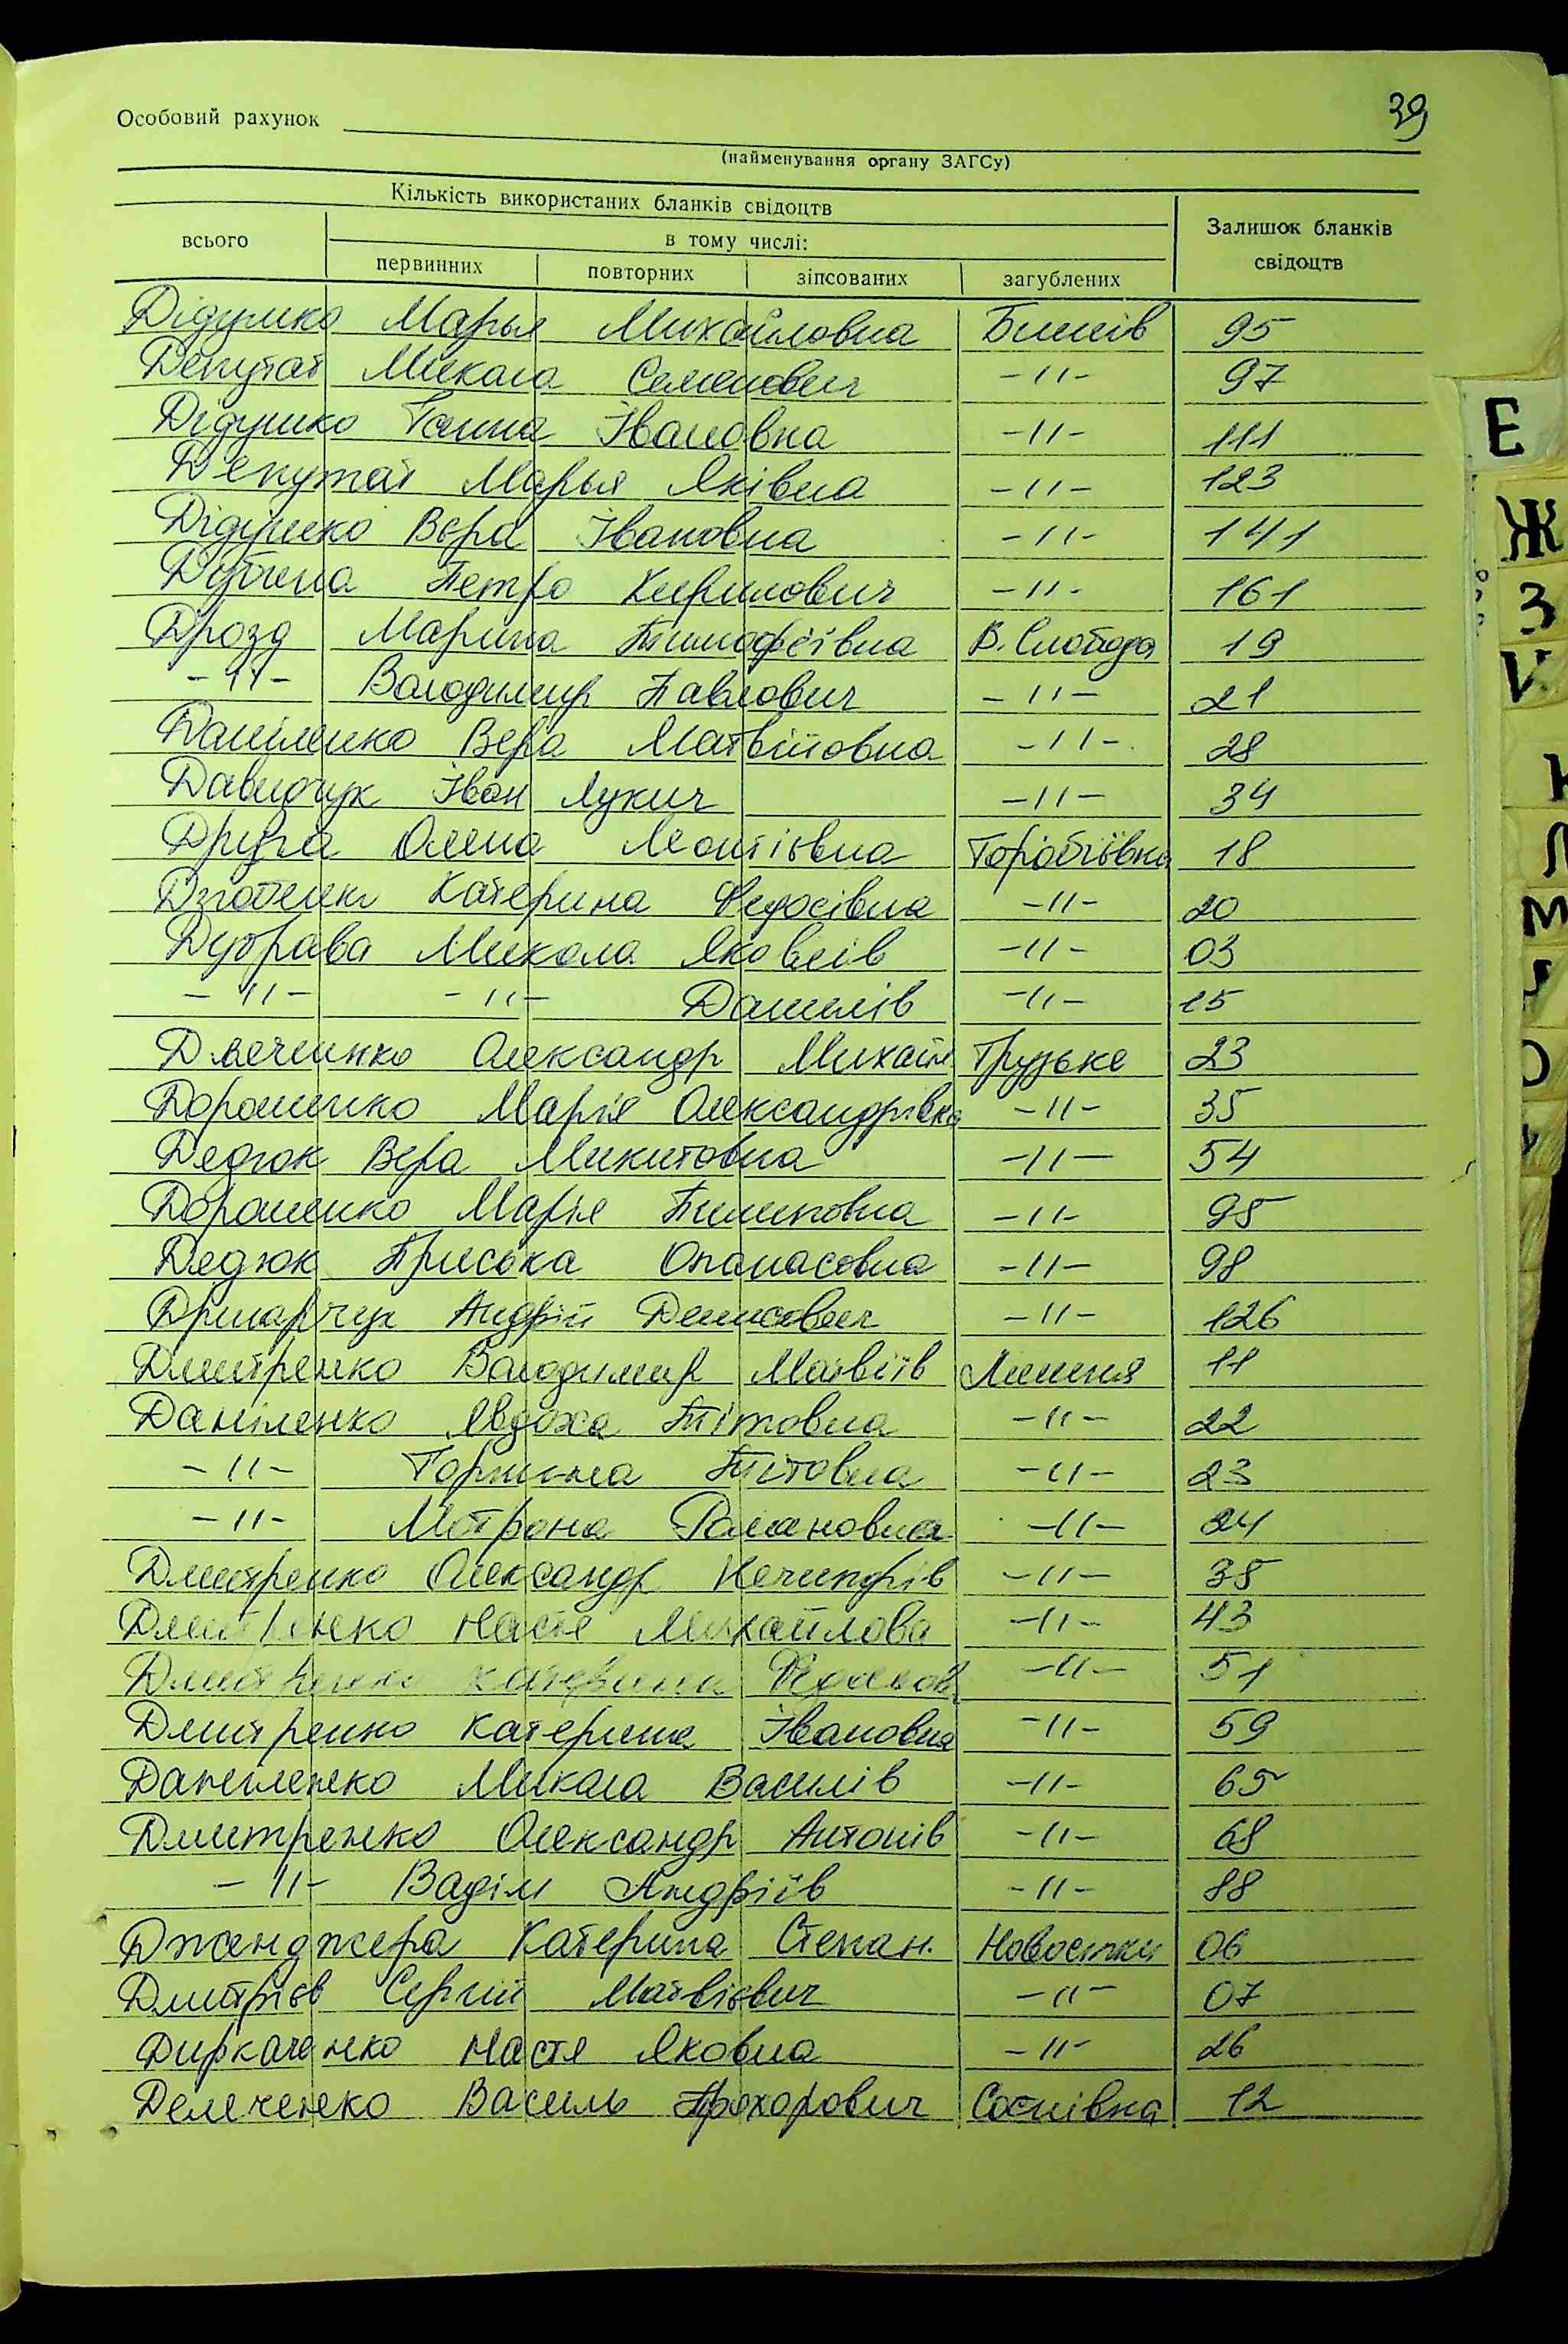 39
Особовий рахунок
(найменування органу ЗАГСу)
Кількість використаних бланків свідоцтв
Залишок бланків свідоцтв
всього
в тому числі:
первинних повторних зіпсованих загублених
Дідушко Марья Михайловна Бишів 95
Депутат Микола Семенович -"- 97
Дідушко Ганна Івановна -"- 111
Депутат Марья Яківна -"- 123
Дідушко Вєра Івановна -"- 141
Дубина Петро Кирилович -"- 161
Дрозд Марина Тимофєївна В. Слобода 19
-"- Володимир Павлович -"- 21
Даніленко Вера Матвійовна -"- 28
Давидчук Іван Лукич -"- 34
Друзь Олена Леонтіївна Горобіївка 18
Катерина Федосівна -"- 20
Дубрава Микола Яковлів -"- 03
-"- -"- Данилів -"- 15
Олександр Михайл Грузьке 23
Дорошенко Марія Олександрівна -"- 35
Дедюк Вера Микитовна -"- 54
Дорошенко Марія Пилиповна -"- 95
Дедюк Приська Опанасовна -"- 98
Андрій Денисович -"- 126
Дмитренко Володимир Матвіїв Лишня 11
Даніленко Явдоха Тітовна -"- 22
-"- Горпина Тітовна -"- 23
-"- Мотрона Романовна -"- 24
Дмитренко Олександр Нечипорів -"- 38
Дмитренко Настя Михайлова -"- 43
Дмитренко Катерина -"- 51
Дмитренко Катерина Івановна -"- 59
Даниленко Микола Василів -"- 65
Дмитренко Олександр Антонів -"- 68
-"- Вадім Андріїв -"- 88
Дженджера Катерина Степан. Новоситки 06
Дмитрієв Сергій Матвієвич -"- 07
Диркаченко Настя Яковна -"- 26
Демченко Василь Прохорович Соснівка 12
Е
Ж
З
М